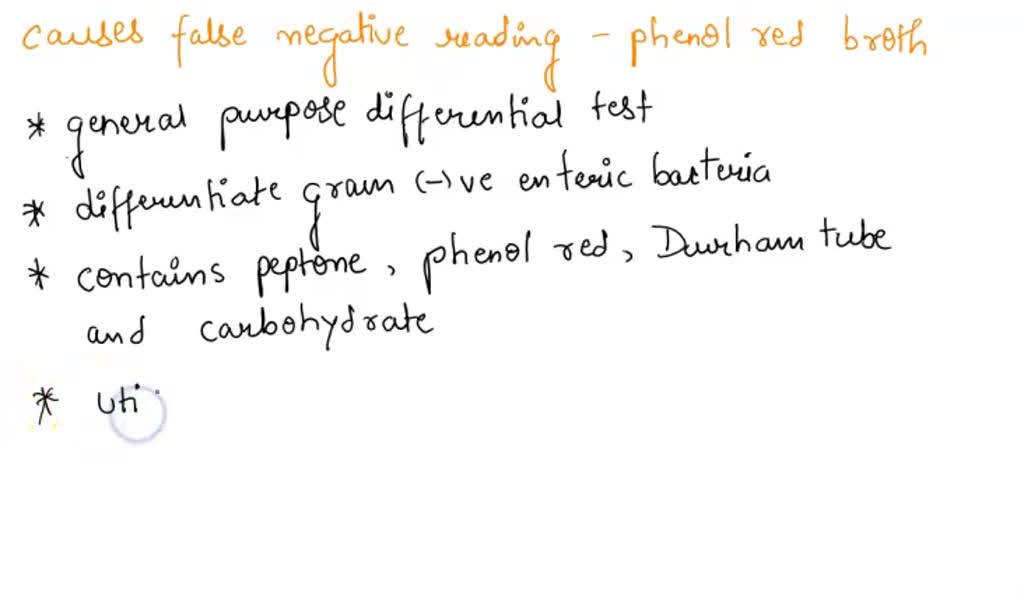 causes false negative reading - phenol red broth
* general purpose differential test
* differentiate gram (-)ve enteric bacteria
* contains peptone, phenol red, Durham tube
and carbohydrate
* uti